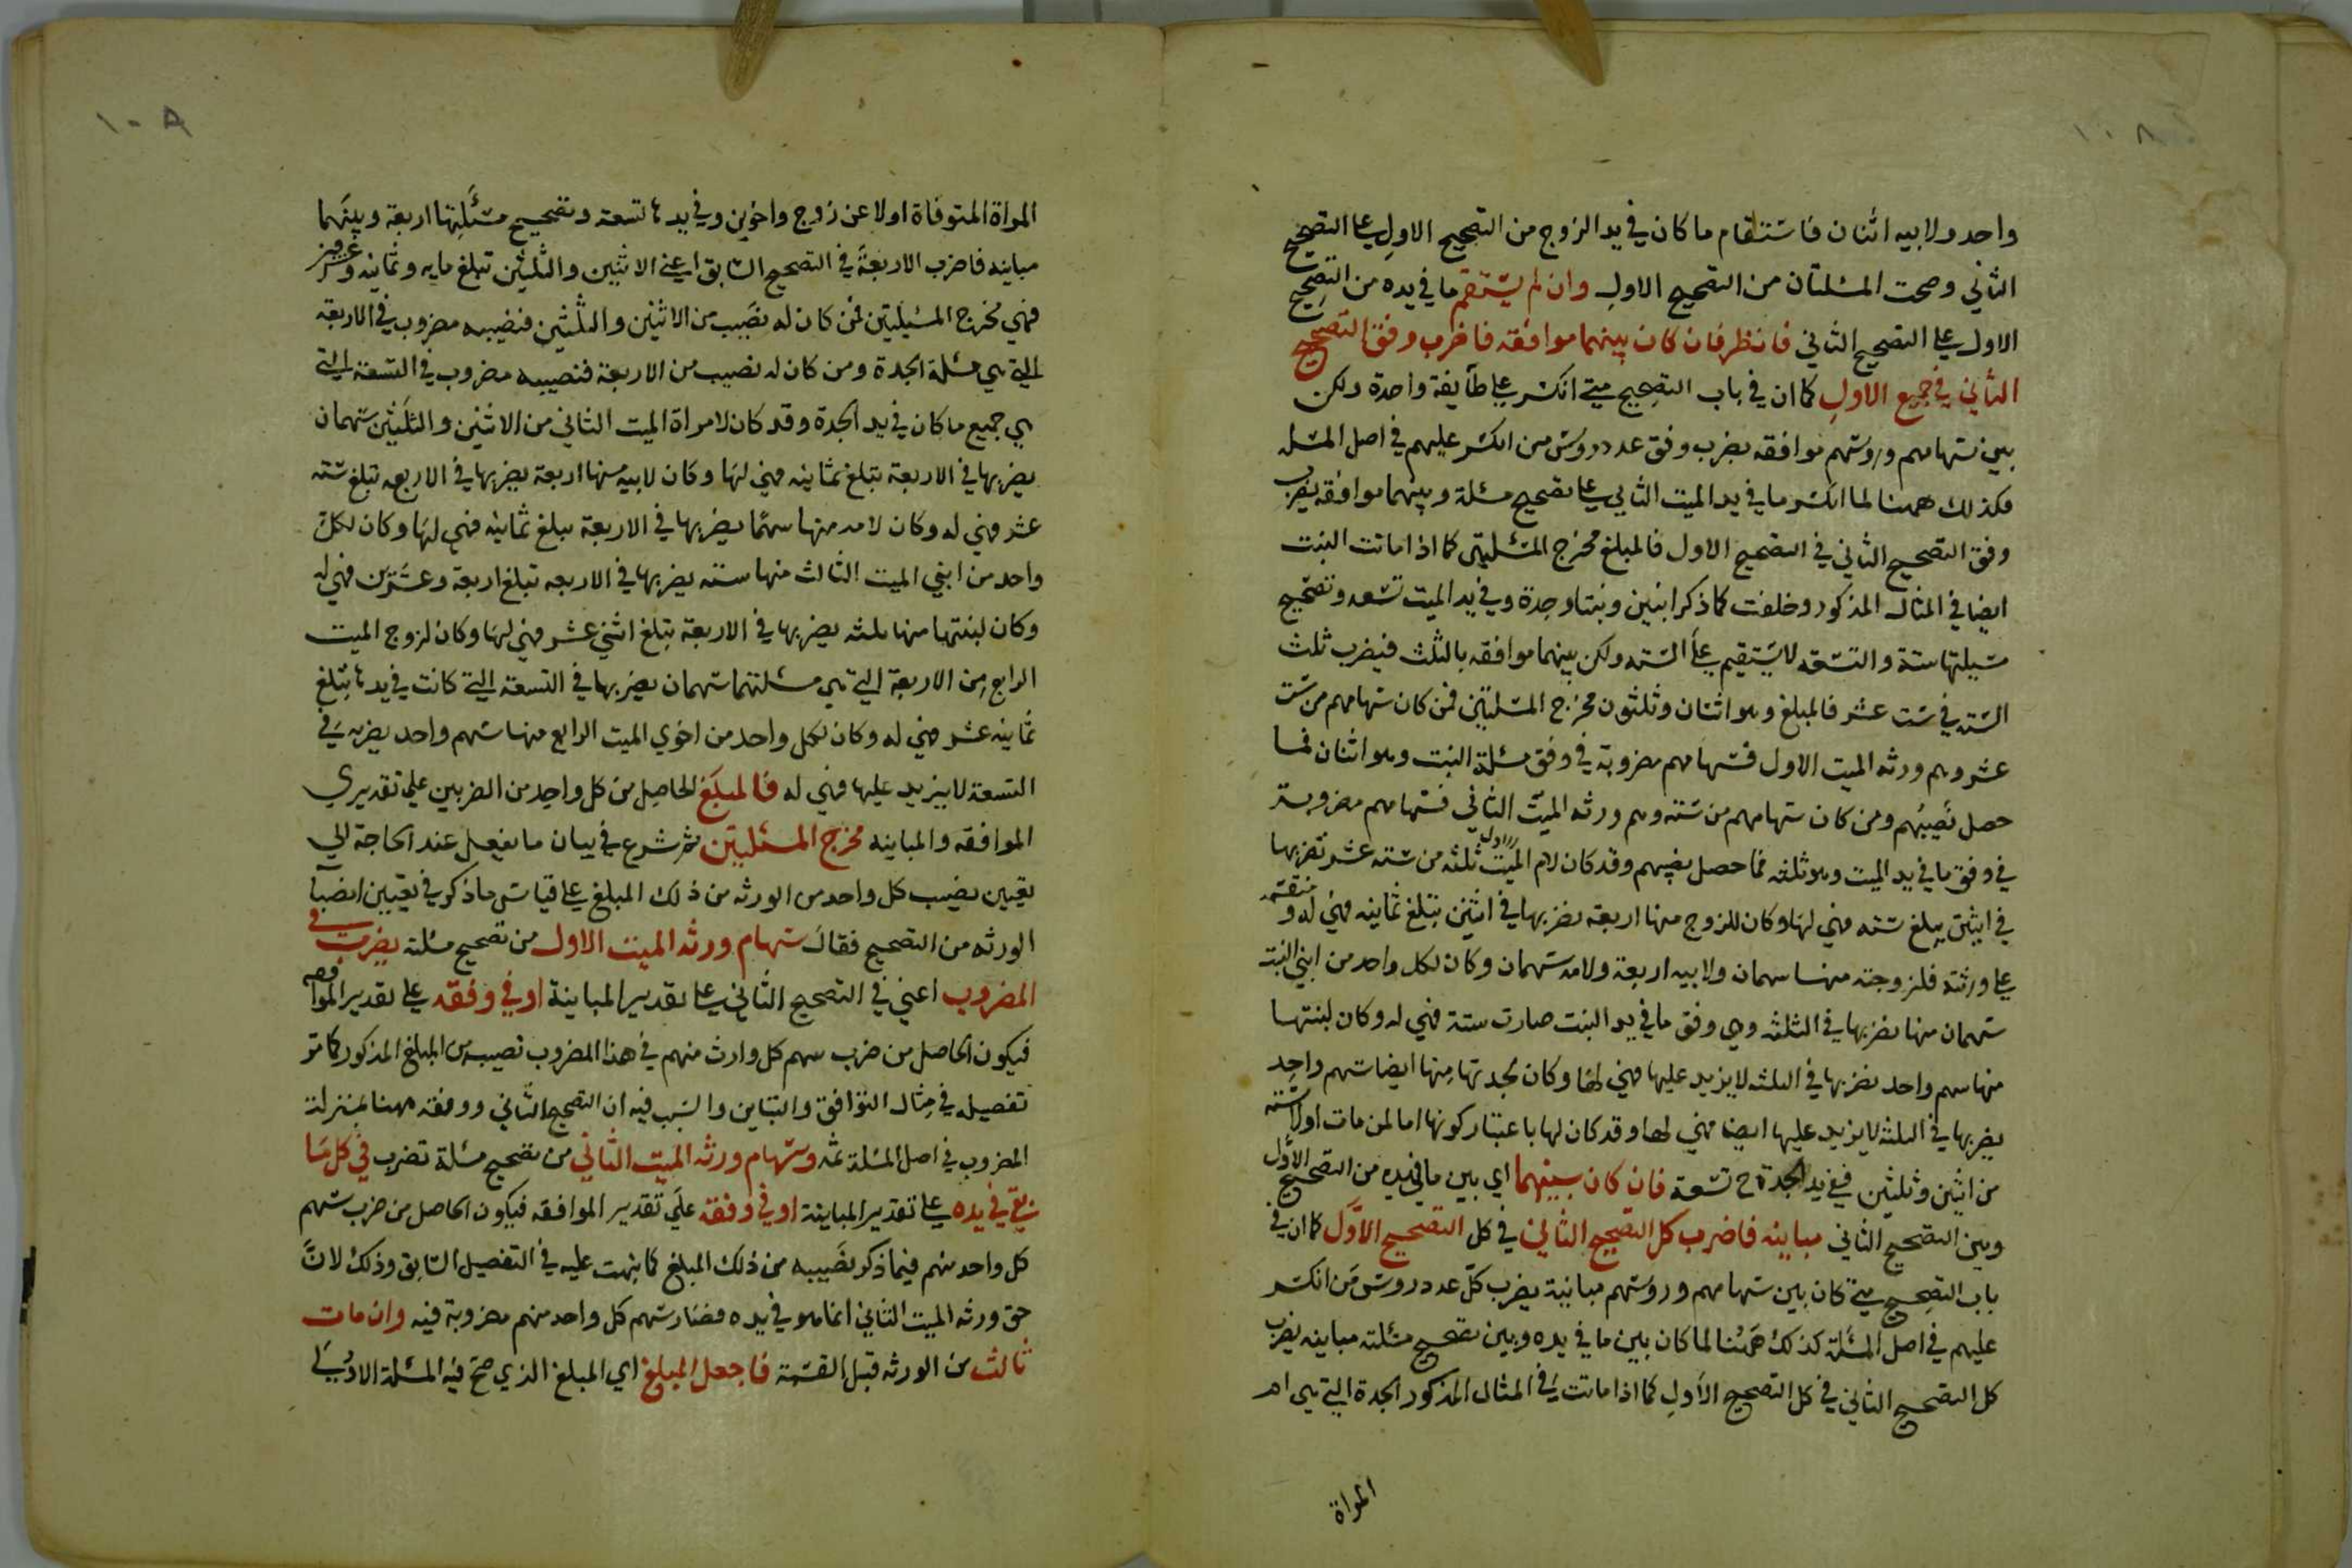 ١٠٨
واحد ولابيه اثنان فاستقام ما كان في يد الزوج من التصحيح الاول على التصحيح
الثاني وصحت المسئلتان من التصحيح الاول وان لم يستقم ما في يده من التصحيح
الاول على التصحيح الثاني فانظر فان كان بينهما موافقه فاضرب وفق التصحيح
الثاني في جميع الاول كما ان في باب التصحيح متى انكسر على طآيفة واحدة ولكن
بين سهامهم وروسهم موافقه يضرب وفق عدد روس من انكسر عليهم في اصل المسئله
فكذلك ههنا لما انكسر ما في يد الميت الثاني على تصحيح مسئلة وبينهما موافقه يضرب
وفق التصحيح الثاني في التصحيح الاول فالمبلغ مخرج المسئلتين كما اذا ماتت البنت
ايضا في المثال المذكور وخلفت كما ذكر ابنين وبنتا وجدة وفي يد الميت تسعه وتصحيح
مسئلتها ستة والتسعه لا يستقيم على السته ولكن بينهما موافقه بالثلث فيضرب ثلث
السته في ست عشر فالمبلغ وهو اثنان وثلثون مخرج المسئلتين فمن كان سهامهم من ست
عشر وهم ورثه الميت الاول فسهامهم مضروبة في وفق مسئلة البنت وهو اثنان فما
حصل نصيبهم ومن كان سهامهم من سته وهم ورثه الميت الثاني فسهامهم مضروبة
في وفق ما في يد الميت وهو ثلثه فما حصل نصيبهم وقد كان لام الميت الاول ثلثه من سته عشر تضربها
في اثنين يبلغ سته فهي لها وكان للزوج منها اربعة يضربها في اثنين يتبلغ ثمانيه فهي له و منقسمه
على ورثته فلزوجته منها سهمان ولابيه اربعة ولامه سهمان وكان لكل واحد من ابني البنت
سهمان منها يضربها في الثلثه وهي وفق ما في يد البنت صارت ستة فهي له وكان لبنتها
منها سهم واحد يضربها في الثلثه لا يزيد عليها فهي لها وكان لجدتها منها ايضا سهم واحد
يضربها في الثلثه لا يزيد عليها ايضا فهي لها وقد كان لها باعتبار كونها اما لمن مات اولا سته
من اثنين وثلثين ففي يد الجدة ح تسعة فان كان بينهما اي بين ما في يده من التصحيح الاول
وبين التصحيح الثاني مباينه فاضرب كل التصحيح الثاني في كل التصحيح الاول كما ان في
باب التصحيح متى كان بين سهامهم وروسهم مباينة يضرب كل عدد روس من انكسر
عليهم في اصل المسئلة كذلك ههنا لما كان بين ما في يده وبين تصحيح مسئلته مباينه يضرب
كل التصحيح الثاني في كل التصحيح الاول كما اذا ماتت في المثال المذكور الجدة التي هي ام
المراة
١٠٨
المراة المتوفاة اولا عن زوج واخوين وفي يدها تسعة وتصحيح مسئلتها اربعة وبينهما
مباينه فاضرب الاربعة في التصحيح السابق اعني الاثنين والثلثين تبلغ مايه وثمانيه وعشرين
فهي مخرج المسئلتين فمن كان له نصيب من الاثنين والثلثين فنصيبه مضروب في الاربعة
التي هي مسئلة الجدة ومن كان له نصيب من الاربعة فنصيبه مضروب في التسعة التي
هي جميع ما كان في يد الجدة وقد كان لامراة الميت الثاني من الاثنين والثلثين سهمان
يضربها في الاربعة تبلغ ثمانيه فهي لها وكان لابيه منها اربعة يضربها في الاربعه تبلغ سته
عشر فهي له وكان لامه منها سهما يضربها في الاربعة يبلغ ثمانيه فهي لها وكان لكل
واحد من ابني الميت الثالث منها سته يضربها في الاربعه تبلغ اربعة وعشرين فهي له
وكان لبنتها منها ثلثه يضربها في الاربعة تبلغ اثني عشر فهي لها وكان لزوج الميت
الرابع من الاربعة التي هي مسئلتها سهمان يضربها في التسعة التي كانت في يدها تبلغ
ثمانيه عشر فهي له وكان لكل واحد من اخوي الميت الرابع منها سهم واحد يضربه في
التسعة لا يزيد عليها فهي له فالمبلغ الحاصل من كل واحد من الضربين على تقديري
الموافقه والمباينه مخرج المسئلتين ثم شرع في بيان ما يفعل عند الحاجة الى
تعيين نصيب كل واحد من الورثه من ذلك المبلغ على قياس ما ذكر في تعيين انصبا
الورثه من التصحيح فقال سهام ورثه الميت الاول من تصحيح مسئلته يضرب في
المضروب اعني في التصحيح الثاني على تقدير المباينة او في وفقه على تقدير الموافقه
فيكون الحاصل من ضرب سهم كل وارث منهم في هذا المضروب نصيبه من المبلغ المذكور كما مر
تفصيله في مثال التوافق والتباين والسبب فيه ان التصحيح الثاني ووفقه ههنا بمنزلة
المضروب في اصل المسئلة ثمه وسهام ورثه الميت الثاني من تصحيح مسئلة تضرب في كل ما
بقي في يده على تقدير المباينة او في وفقه على تقدير الموافقه فيكون الحاصل من ضرب سهم
كل واحد منهم فيما ذكر نصيبه من ذلك المبلغ كما نبهت عليه في التفصيل السابق وذلك لان
حق ورثه الميت الثاني انما هو في يده فصار سهم كل واحد منهم مضروبة فيه وان مات
ثالث من الورثه قبل القسمة فاجعل المبلغ اي المبلغ الذي صح فيه المسئلة الاولى